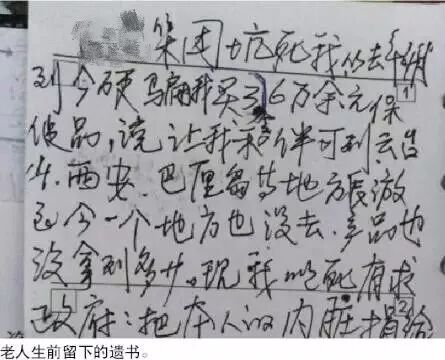 集团坑死我从去年
到今硬骗我买了6万余元保
健品,说让我和老伴可到云台
山.西安.巴厘岛等地方旅游
至今一个地方也没去.产品也
没拿到多少.现我以死有求
政府:把本人的内脏捐给
1
2
老人生前留下的遗书。